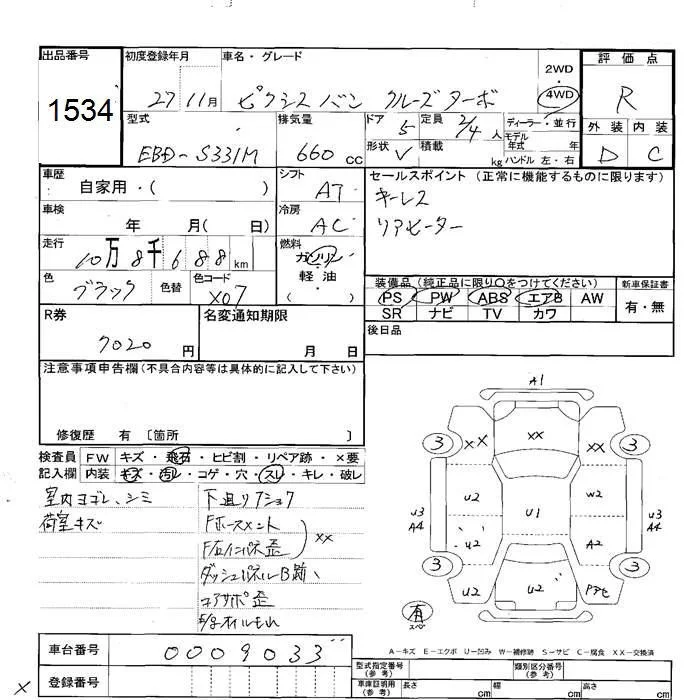 出品番号 初度登録年月 車名・グレード 2WD・4WD 評価点
1534 27 11月 ピクシス バン クルーズターボ R
型式 排気量 ドア 5 定員 2/4人 ディーラー・並行 外装 内装
EBD-S331M 660cc 形状 V 積載 kg モデル年式 年 ハンドル 左・右 D C
車歴 自家用・( ) シフト AT セールスポイント (正常に機能するものに限ります)
車検 年 月( 日) 冷房 AC キーレス
リアヒーター
走行 10万8千688km 燃料 ガソリン・軽油・( )
色 ブラック 色替 色コード X07
装備品 (純正品に限り○をつけてください) 新車保証書
PS PW ABS エアB AW 有・無
SR ナビ TV カワ
R券 7020円 名変通知期限 月 日 後日品
注意事項申告欄 (不具合内容等は具体的に記入して下さい)
修復歴 有 〔箇所 〕
検査員 FW キズ・飛石・ヒビ割・リペア跡・×要
記入欄 内装 キズ・汚レ・コゲ・穴・スレ・キレ・破レ
室内ヨゴレ、シミ
荷室キズ
下廻りサショウ
Fホースメント
F右インパネ歪 XX
ダッシュパネルB
コアサポ歪
オイルもれ
A1
3 XX XX XX 3
U2 U1 W2
U3 A4 U2 A2 U3 A4
3 U2 U2 Pアセ 3
有 スペ
A－キズ E－エクボ U－凹み W－補修跡 S－サビ C－腐食 XX－交換済
車台番号 0009033
登録番号
X
型式指定番号 (参考) 類別区分番号 (参考)
車庫証明用 (参考) 長さ cm 幅 cm 高さ cm